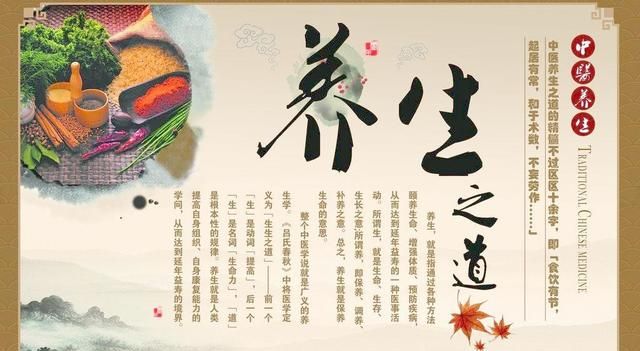 中醫养生
TRADITIONAL CHINESE MEDICINE
中医养生之道的精髓不过区区十余字，即「食饮有节，
起居有常，和于术数，不妄劳作……」
养生之道
养生，就是指通过各种方法
颐养生命、增强体质、预防疾病，
从而达到延年益寿的一种医事活
动。所谓生，就是生命、生存、
生长之意;所谓养，即保养、调养、
补养之意。总之，养生就是保养
生命的意思。
整个中医学说就是广义的养
生学。《吕氏春秋》中将医学定
义为「生生之道」——前一个
「生」是动词「提高」，后一个
「生」是名词「生命力」，「道」
是根本性的规律。养生就是人类
提高自身组织、自身康复能力的
学问，从而达到延年益寿的境界。